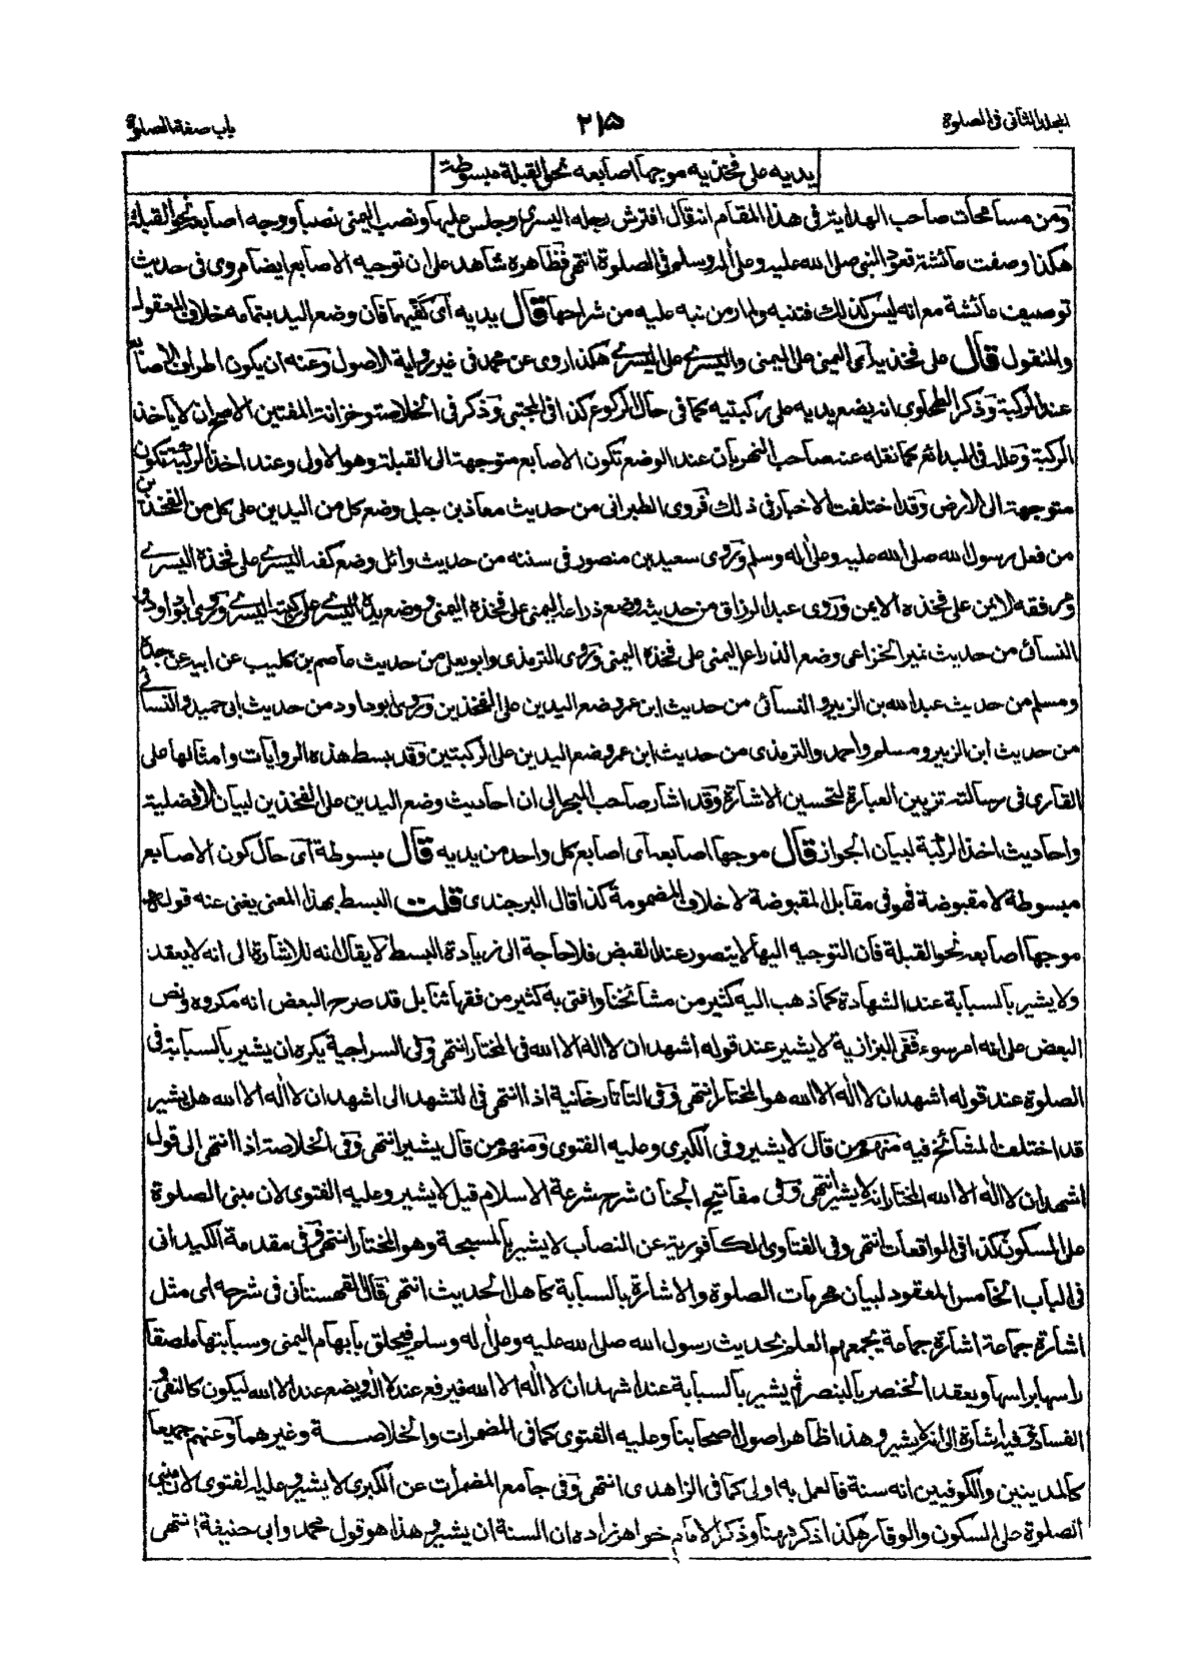 المجلد الثانی فی الصلوة
٢١٥
باب صفة الصلوة
يديه على فخذيه موجها اصابعه نحو القبلة مبسوطة
ومن مسامحات صاحب الهداية فی هذا المقام انه قال افترش رجله اليسرى وجلس عليها ونصب اليمنی نصبا ووجه اصابعه نحو القبلة
هكذا وصفت عائشة قعود النبی صلى الله عليه وعلى اله وسلم فی الصلوة انتهى فظاهره شاهد على ان توجيه الاصابع ايضا مروی فی حديث
توصيف عائشة مع انه ليس كذلك فتنبه ولم ار من نبه عليه من شراحها قال يديه ای كفيهما فان وضع اليد بتمامه خلاف المعقول
والمنقول قال على فخذيه ای اليمنى على اليمنى واليسرے على اليسرے هكذا روی عن محمد فی غير رواية الاصول وعنه ان يكون اطراف الاصابع
عند الركبة وذكر الطحاوی انه يضع يديه على ركبتيه كما فی حال الركوع كذا فی المجتبى وذكر فی الخلاصة وخزانة المفتين الاصح ان لا ياخذ
الركبة وعلله فی البدائع كما نقله عنه صاحب النهر بان عند الوضع تكون الاصابع متوجهة الى القبلة وهو الاولى وعند اخذ الركبة تكون
متوجهة الى الارض وقد اختلفت الاخبار فی ذلك فروی الطبرانی من حديث معاذ بن جبل وضع كل من اليدين على كل من الفخذين
من فعل رسول الله صلى الله عليه وعلى اله وسلم وروى سعيد بن منصور فی سننه من حديث وائل وضع كفه اليسرے على فخذه اليسرے
ومرفقه الايمن على فخذه الايمن وروى عبد الرزاق من حديثه وضع ذراعه اليمنى على فخذه اليمنى ووضع يده اليسرے على ركبته اليسرے وروى ابو داود و
النسائی من حديث نمير الخزاعی وضع الذراع اليمنى على فخذه اليمنى وروى الترمذی وابو يعلى من حديث عاصم بن كليب عن ابيه عن جده
ومسلم من حديث عبد الله بن الزبير والنسائی من حديث ابن عمر وضع اليدين على الفخذين وروى ابو داود من حديث ابی حميد والنسائے
من حديث ابن الزبير ومسلم واحمد والترمذی من حديث ابن عمر وضع اليدين على الركبتين وقد بسط هذه الروايات وامثالها على
القاری فی رسالته تزيين العبارة لتحسين الاشارة وقد اشار صاحب البحر الى ان احاديث وضع اليدين على الفخذين لبيان الافضلية
واحاديث اخذ الركبة لبيان الجواز قال موجها اصابعه ای اصابع كل واحد من يديه قال مبسوطة ای حال كون الاصابع
مبسوطة لا مقبوضة فهو فی مقابل المقبوضة لا خلاف المضمومة كذا قال البرجندی قلت البسط بهذا المعنى يغنی عنه قوله
موجها اصابعه نحو القبلة فان التوجيه اليها لا يتصور عند القبض فلا حاجة الى زيادة البسط لا يقال انه للاشارة الى انه لا يعقد
ولا يشير بالسبابة عند الشهادة كما ذهب اليه كثير من مشائخنا وافتى به كثير من فقهائنا بل قد صرح البعض انه مكروه ونص
البعض على انه امر سوء ففی البزازية لا يشير عند قوله اشهد ان لا اله الا الله فی المختار انتهى وفی السراجية يكره ان يشير بالسبابة فی
الصلوة عند قوله اشهد ان لا اله الا الله هو المختار انتهى وفی التاتارخانية اذا انتهى فی التشهد الى اشهد ان لا اله الا الله هل يشير
قد اختلف المشائخ فيه منهم من قال لا يشير وفی الكبرى وعليه الفتوى ومنهم من قال يشير انتهى وفی الخلاصة اذا انتهى الى قول
اشهد ان لا اله الا الله المختار انه لا يشير انتهى وفی مفاتيح الجنان شرح شرعة الاسلام قيل لا يشير وعليه الفتوى لان مبنى الصلوة
على السكون كذا فی الواقعات انتهى وفی الفتاوى الكافورية عن النصاب لا يشير بالمسبحة وهو المختار انتهى وفی مقدمة الكيدانی
فی الباب الخامس المعقود لبيان محرمات الصلوة والاشارة بالسبابة كاهل الحديث انتهى قال القهستانی فی شرحه ای مثل
اشارة جماعة اشارة جماعة يجمعهم العلم بحديث رسول الله صلى الله عليه وعلى اله وسلم فيحلق بابهام اليمنى وسبابتها ملصقا
راسها براسها ويعقد الخنصر بالبنصر ثم يشير بالسبابة عند اشهد ان لا اله الا الله فيرفع عند لا اله ويضع عند الا الله ليكون كالنفی و
وفيه اشارة الى انه لا يشير وهذا ظاهر اصول اصحابنا وعليه الفتوى كما فی المضمرات والخلاصة وغيرهما وعنهم جميعا
كالمدينيين والكوفيين انه سنة فالعمل به اولى كما فی الزاهدی انتهى وفی جامع المضمرات عن الكبرى لا يشير وعليه الفتوى لان مبنى
الصلوة على السكون والوقار هكذا ذكر ههنا وذكر الامام خواهرزاده ان السنة ان يشير وهذا هو قول محمد وابی حنيفة انتهى